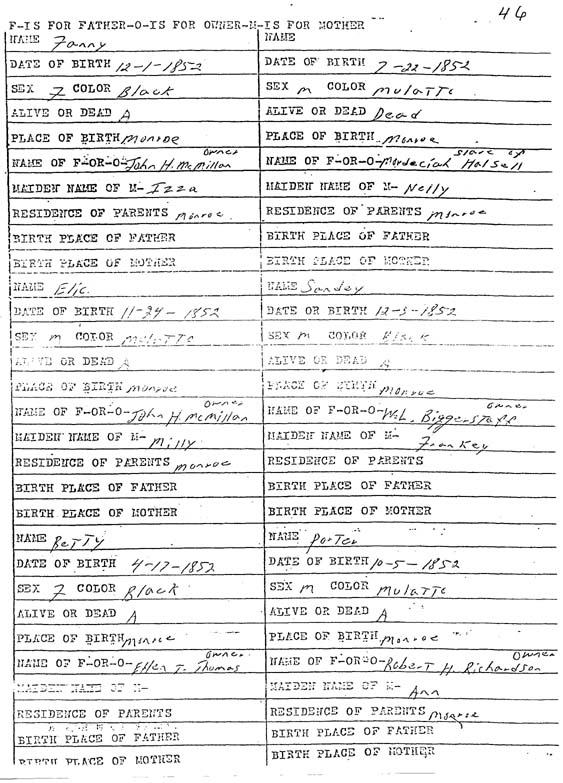 46
F-IS FOR FATHER-O-IS FOR OWNER-M-IS FOR MOTHER
NAME Fanny
DATE OF BIRTH 12-1-1852
SEX F COLOR Black
ALIVE OR DEAD A
PLACE OF BIRTH monroe
owner
NAME OF F-OR-O-John H. McMillan
MAIDEN NAME OF M- Izza
RESIDENCE OF PARENTS monroe
BIRTH PLACE OF FATHER
BIRTH PLACE OF MOTHER
NAME
DATE OF BIRTH 7-22-1852
SEX m COLOR mulatto
ALIVE OR DEAD Dead
PLACE OF BIRTH monroe
slave of
NAME OF F-OR-O-Mordeciah Halsell
MAIDEN NAME OF M- Nelly
RESIDENCE OF PARENTS monroe
BIRTH PLACE OF FATHER
BIRTH PLACE OF MOTHER
NAME Elic.
DATE OF BIRTH 11-24-1852
SEX m COLOR mulatto
ALIVE OR DEAD A
PLACE OF BIRTH monroe
owner
NAME OF F-OR-O-John H. McMillan
MAIDEN NAME OF M- Milly
RESIDENCE OF PARENTS monroe
BIRTH PLACE OF FATHER
BIRTH PLACE OF MOTHER
NAME Sandey
DATE OR BIRTH 12-3-1852
SEX m COLOR Black
ALIVE OR DEAD A
PLACE OF BIRTH monroe
owner
NAME OF F-OR-O-W.L. Biggerstaff
MAIDEN NAME OF M- Frankey
RESIDENCE OF PARENTS
BIRTH PLACE OF FATHER
BIRTH PLACE OF MOTHER
NAME Betty
DATE OF BIRTH 4-17-1852
SEX F COLOR Black
ALIVE OR DEAD A
PLACE OF BIRTH monroe
owner
NAME OF F-OR-O-Ellen T. Thomas
MAIDEN NAME OF M-
RESIDENCE OF PARENTS
BIRTH PLACE OF FATHER
BIRTH PLACE OF MOTHER
NAME Porter
DATE OF BIRTH 10-5-1852
SEX m COLOR mulatto
ALIVE OR DEAD A
PLACE OF BIRTH monroe
owner
NAME OF F-OR-O-Robert H. Richardson
MAIDEN NAME OF M- Ann
RESIDENCE OF PARENTS monroe
BIRTH PLACE OF FATHER
BIRTH PLACE OF MOTHER